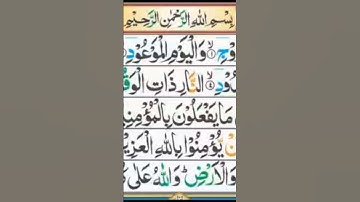 بِسْمِ اللهِ الرَّحْمٰنِ الرَّحِيْمِ
وْجِ ۝١ وَالْيَوْمِ الْمَوْعُوْدِ
دُوْدِ ۝٤ النَّارِ ذَاتِ الْوَقُ
مَا يَفْعَلُوْنَ بِالْمُؤْمِنِ
نْ يُّؤْمِنُوْا بِاللهِ الْعَزِيْ
وَالْاَرْضِ ؕ وَاللهُ عَلٰى